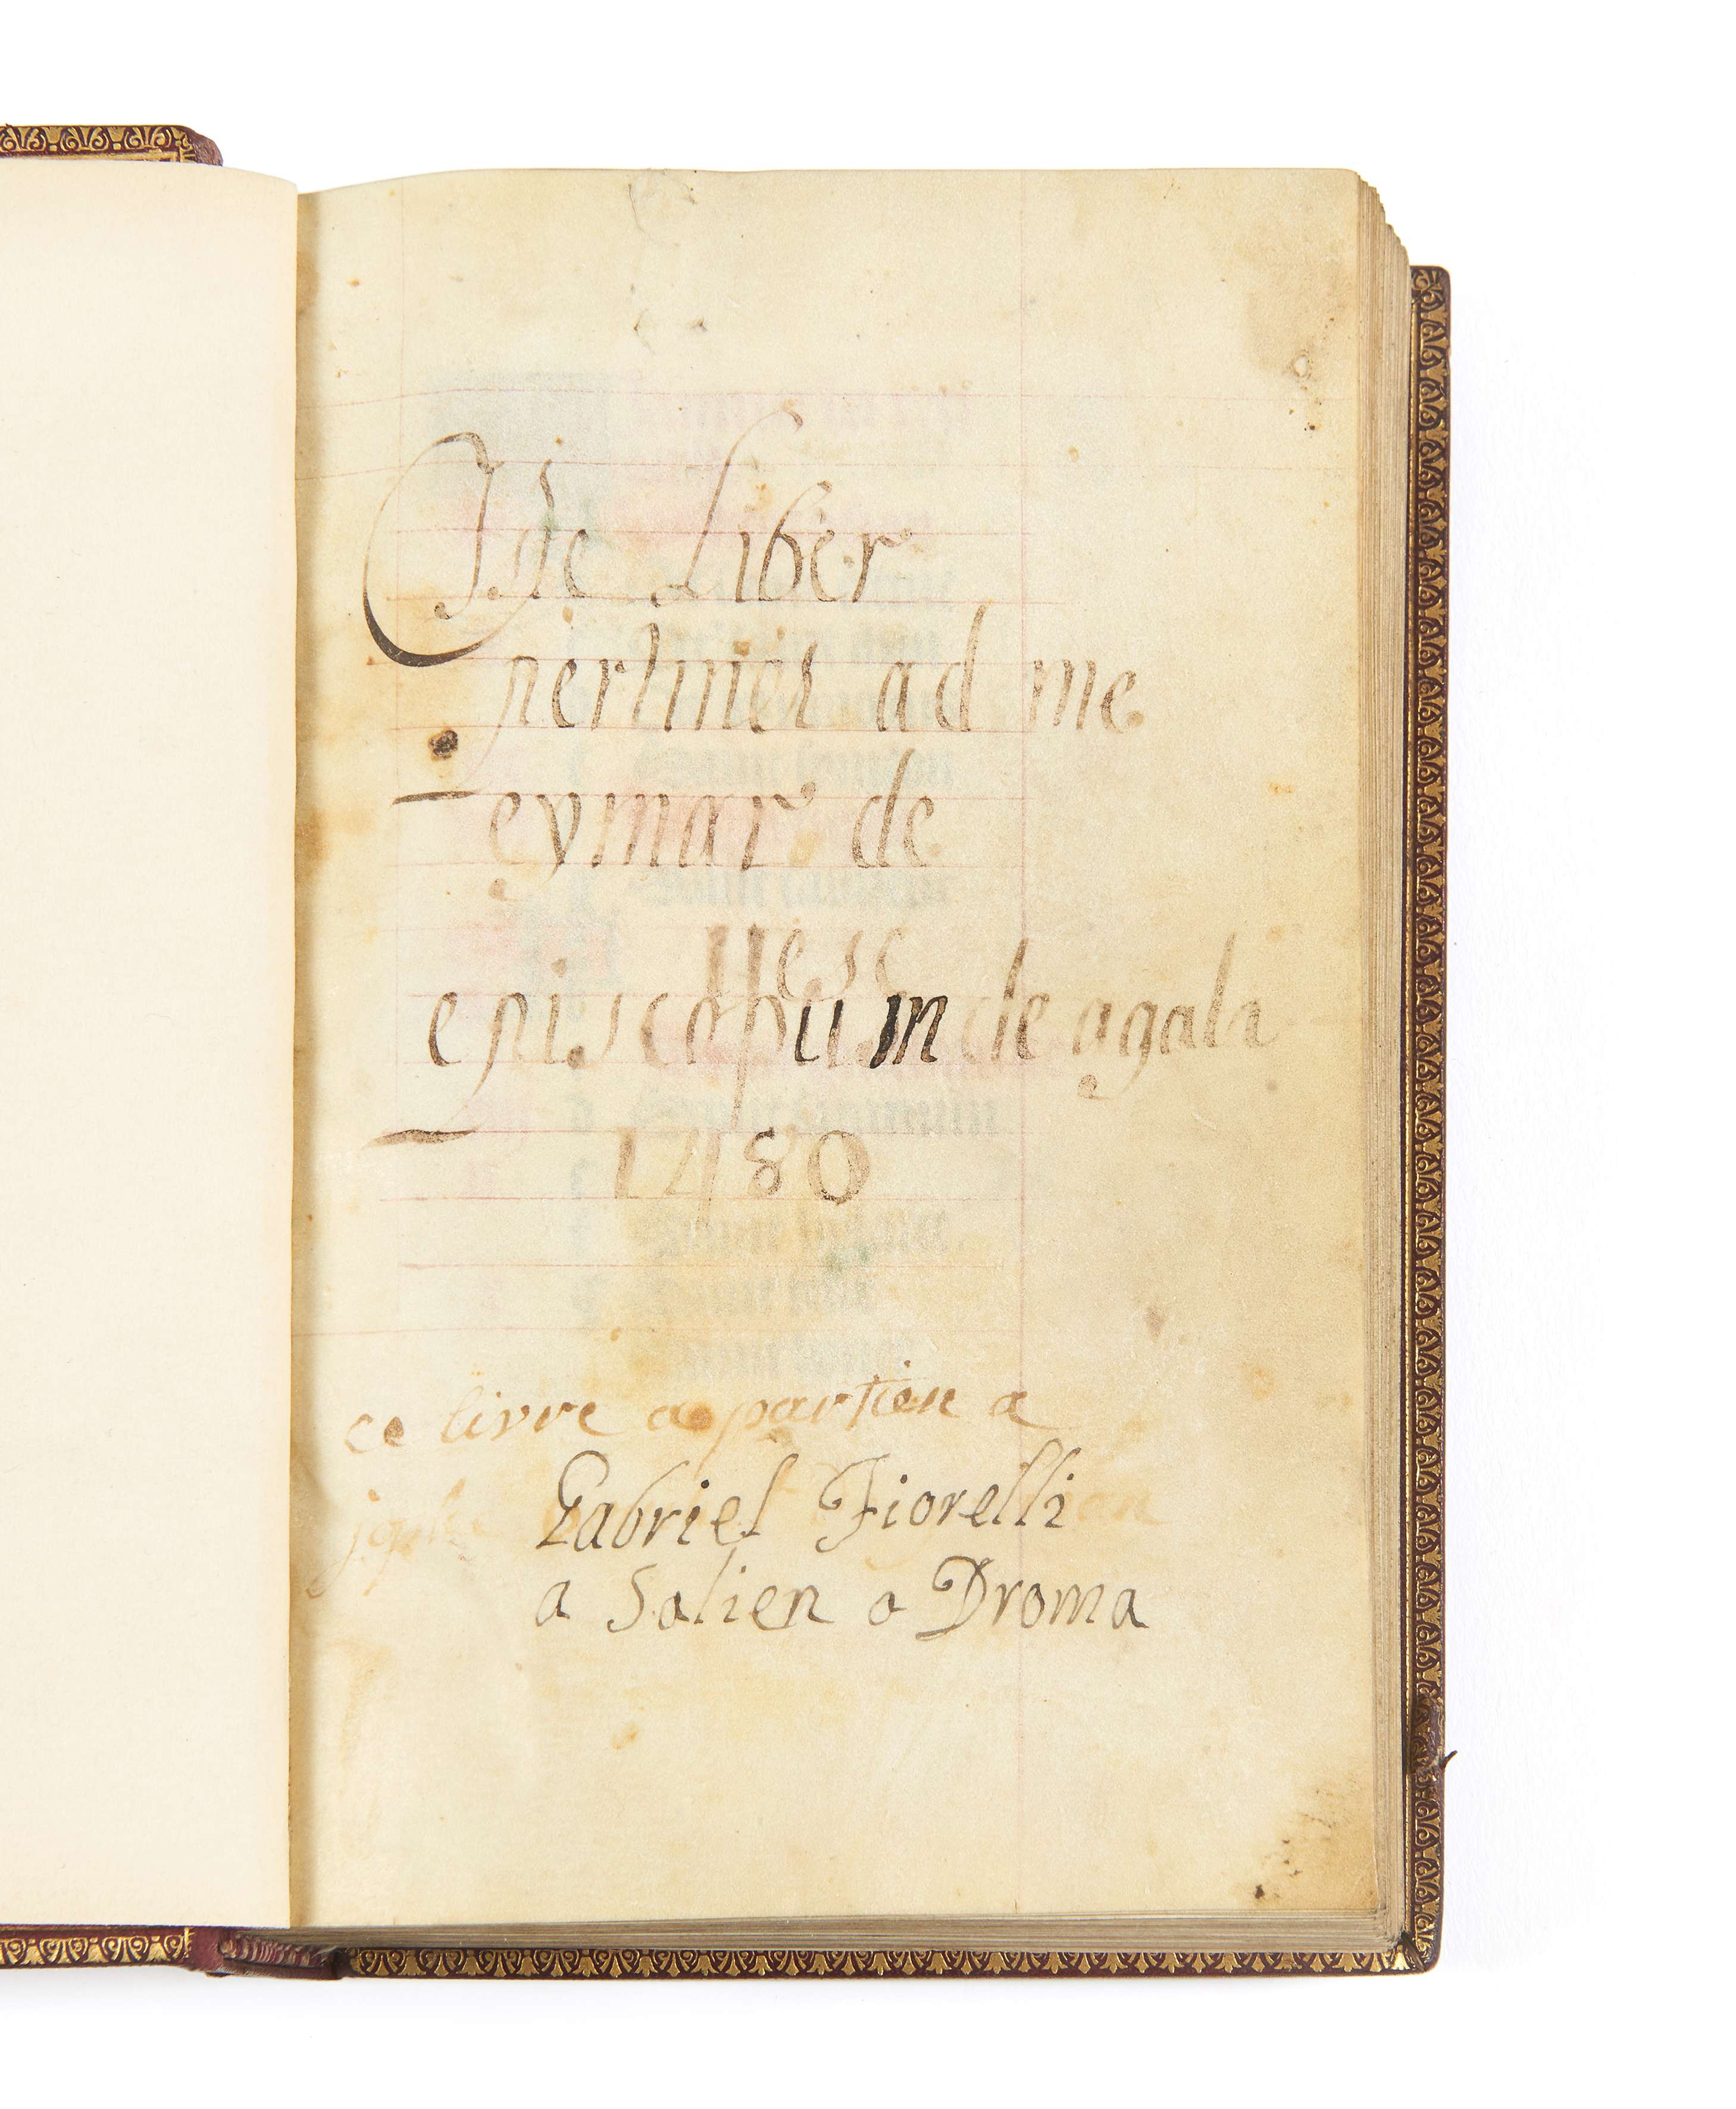 Iste Liber
pertinet ad me
eymar de
episcopum de agala
1480
ce livre apartien a
Gabriel Fiorelli
a Salien o Droma